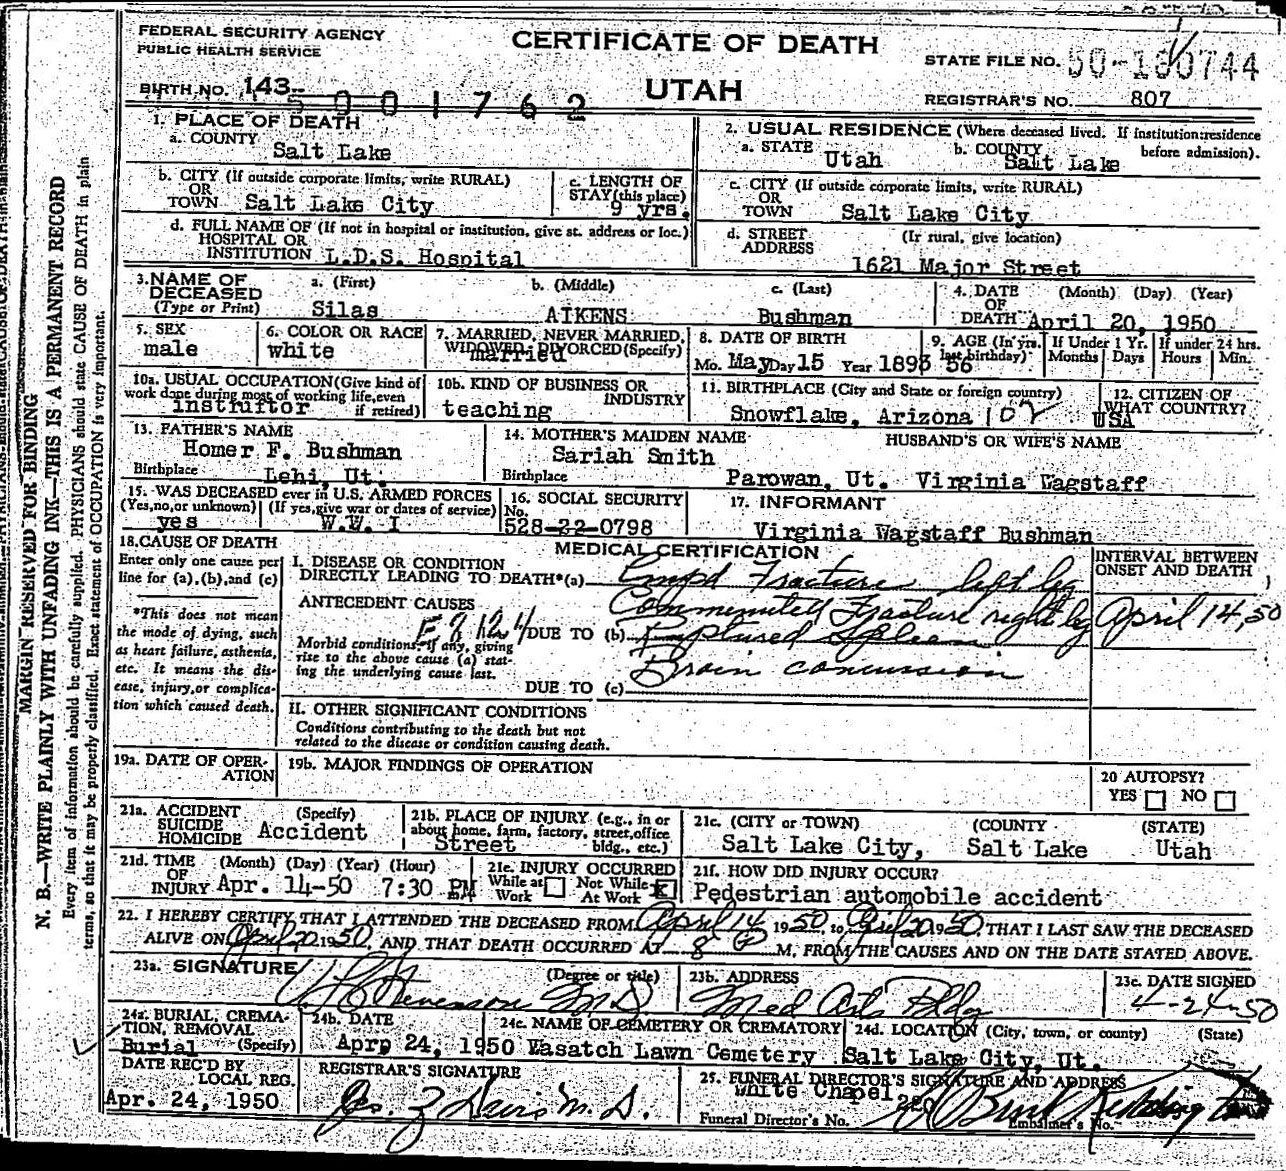 FEDERAL SECURITY AGENCY
PUBLIC HEALTH SERVICE
CERTIFICATE OF DEATH
UTAH
STATE FILE NO. 50-180744
BIRTH NO. 143-
5001762
REGISTRAR'S NO. 807
1. PLACE OF DEATH
a. COUNTY
Salt Lake
2. USUAL RESIDENCE (Where deceased lived. If institution:residence before admission).
a. STATE Utah b. COUNTY Salt Lake
b. CITY (If outside corporate limits, write RURAL)
OR
TOWN Salt Lake City
c. LENGTH OF STAY(this place)
9 yrs.
c. CITY (If outside corporate limits, write RURAL)
OR
TOWN Salt Lake City
d. FULL NAME OF (If not in hospital or institution, give st. address or loc.)
HOSPITAL OR
INSTITUTION L.D.S. Hospital
d. STREET ADDRESS (If rural, give location)
1621 Major Street
3. NAME OF DECEASED (Type or Print)
a. (First) b. (Middle) c. (Last)
Silas AIKENS Bushman
4. DATE OF DEATH (Month) (Day) (Year)
April 20, 1950
5. SEX
male
6. COLOR OR RACE
white
7. MARRIED, NEVER MARRIED, WIDOWED, DIVORCED (Specify)
married
8. DATE OF BIRTH
Mo. May Day 15 Year 1893
9. AGE (In yrs. last birthday) 56
If Under 1 Yr. Months Days
If under 24 hrs. Hours Min.
10a. USUAL OCCUPATION(Give kind of work done during most of working life,even if retired)
instruftor
10b. KIND OF BUSINESS OR INDUSTRY
teaching
11. BIRTHPLACE (City and State or foreign country)
Snowflake, Arizona 102
12. CITIZEN OF WHAT COUNTRY?
USA
13. FATHER'S NAME
Homer F. Bushman
Birthplace Lehi, Ut.
14. MOTHER'S MAIDEN NAME HUSBAND'S OR WIFE'S NAME
Sariah Smith
Birthplace Parowan, Ut. Virginia Wagstaff
15. WAS DECEASED ever in U.S. ARMED FORCES
(Yes,no,or unknown) (If yes,give war or dates of service)
yes W.W. I
16. SOCIAL SECURITY No.
528-22-0798
17. INFORMANT
Virginia Wagstaff Bushman
18. CAUSE OF DEATH
Enter only one cause per line for (a),(b),and (c)
*This does not mean the mode of dying, such as heart failure, asthenia, etc. It means the disease, injury,or complication which caused death.
MEDICAL CERTIFICATION
I. DISEASE OR CONDITION
DIRECTLY LEADING TO DEATH*(a) Cmpd Fracture left leg
INTERVAL BETWEEN ONSET AND DEATH
ANTECEDENT CAUSES Commenuted Fracture right leg April 14, 50
E 812.4 DUE TO (b) Ruptured Spleen
Morbid conditions, if any, giving rise to the above cause (a) stating the underlying cause last.
Brain concussion
DUE TO (c)
II. OTHER SIGNIFICANT CONDITIONS
Conditions contributing to the death but not
related to the disease or condition causing death.
19a. DATE OF OPERATION
19b. MAJOR FINDINGS OF OPERATION
20 AUTOPSY?
YES NO
21a. ACCIDENT SUICIDE HOMICIDE (Specify)
Accident
21b. PLACE OF INJURY (e.g., in or about home, farm, factory, street,office bldg., etc.)
Street
21c. (CITY or TOWN) (COUNTY (STATE)
Salt Lake City, Salt Lake Utah
21d. TIME OF INJURY (Month) (Day) (Year) (Hour)
Apr. 14-50 7:30 PM
21e. INJURY OCCURRED
While at Work Not While At Work X
21f. HOW DID INJURY OCCUR?
Pedestrian automobile accident
22. I HEREBY CERTIFY THAT I ATTENDED THE DECEASED FROM April 14 1950, to April 20 1950, THAT I LAST SAW THE DECEASED
ALIVE ON April 20 1950, AND THAT DEATH OCCURRED AT 8 P M, FROM THE CAUSES AND ON THE DATE STATED ABOVE.
23a. SIGNATURE (Degree or title)
Stevenson M.D.
23b. ADDRESS
Med Arts Bldg
23c. DATE SIGNED
4-24-50
24a. BURIAL, CREMATION, REMOVAL (Specify)
Burial
24b. DATE
Apr. 24, 1950
24c. NAME OF CEMETERY OR CREMATORY
Wasatch Lawn Cemetery
24d. LOCATION (City, town, or county) (State)
Salt Lake City, Ut.
DATE REC'D BY LOCAL REG.
Apr. 24, 1950
REGISTRAR'S SIGNATURE
Jos. Z Davis M.D.
25. FUNERAL DIRECTOR'S SIGNATURE AND ADDRESS
White Chapel
Funeral Director's No. 220 Embalmer's No.
MARGIN RESERVED FOR BINDING
N. B.—WRITE PLAINLY WITH UNFADING INK—THIS IS A PERMANENT RECORD
Every item of information should be carefully supplied. PHYSICIANS should state CAUSE OF DEATH in plain
terms, so that it may be properly classified. Exact statement of OCCUPATION is very important.